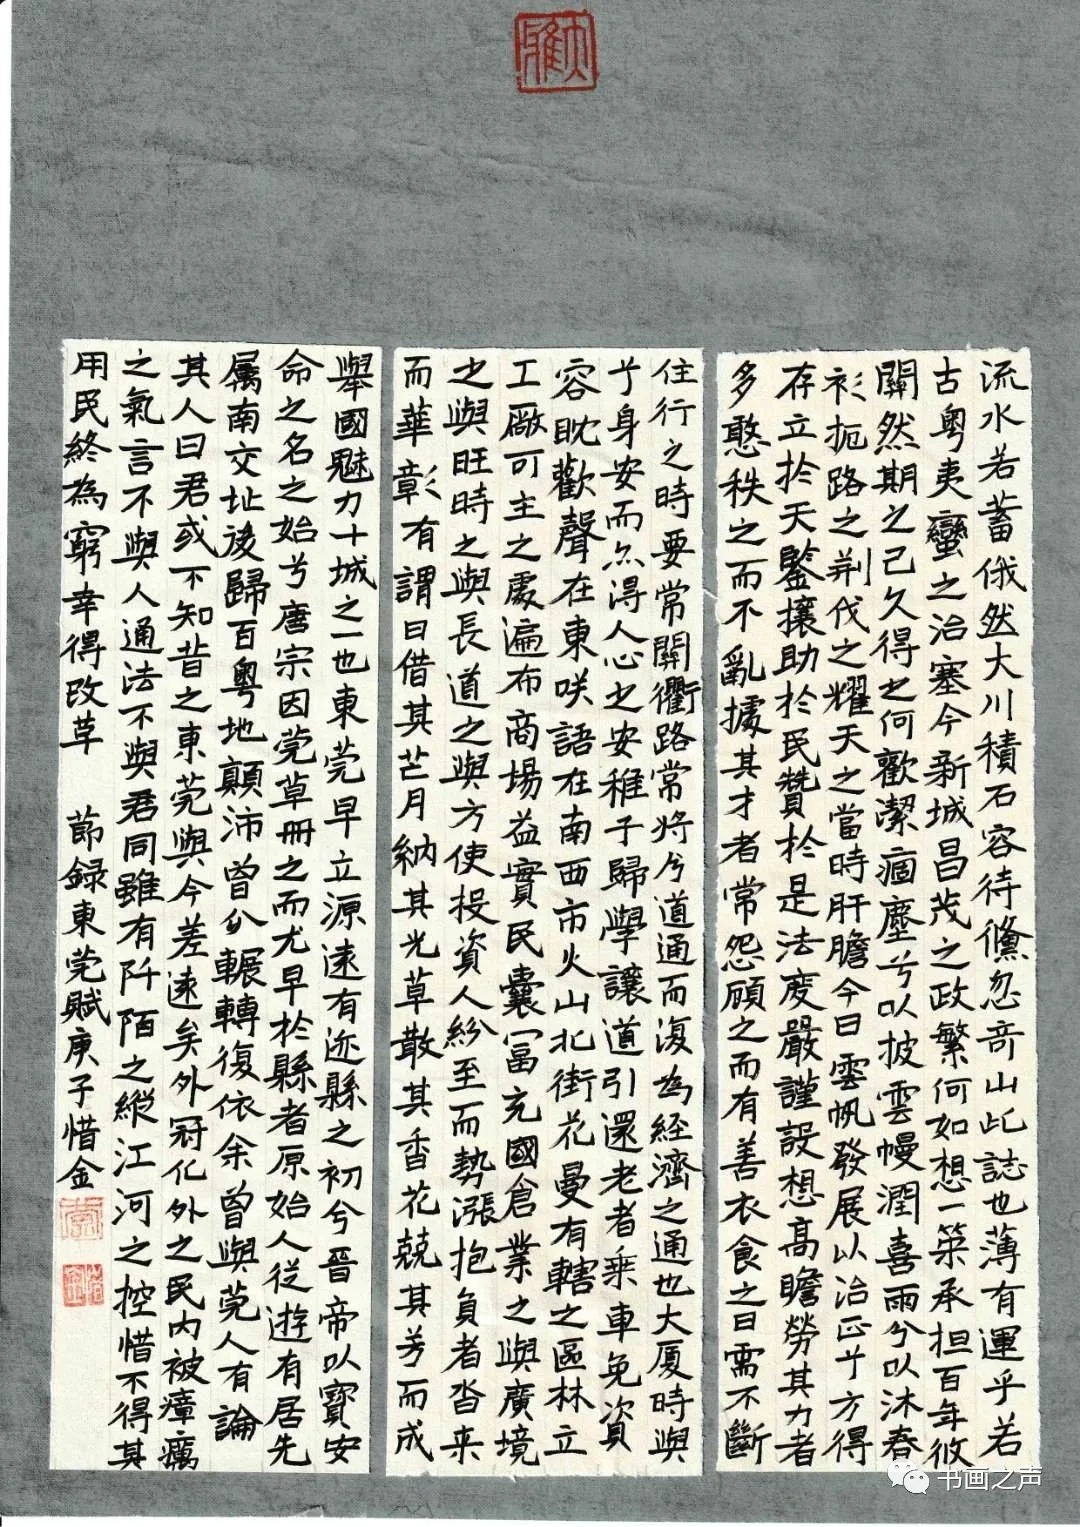 流水若蓄俄然大川積石容待儵忽奇山此誌也薄有運乎若
古粵夷蠻之治塞今新城昌茂之政繁何如想一策承担百年攸
關然期之已久得之何歡潔痼塵兮以披雲幔潤喜雨兮以沐春
衫扼路之荆伐之耀天之當時肝膽今日雲帆發展以治正乎方得
存立於天鑒攘助於民贊於是法度嚴謹設想高瞻勞其力者
多憨秩之而不亂據其才者常怨顧之而有善衣食之日需不斷
住行之時要常關衢路常將兮道通而復為經濟之通也大厦時與
乎身安而尓得人心之安稚子歸學讓道引還老者乘車免資
容眈歡聲在東咲語在南西市火山北街花曼有轄之區林立
工廠可主之處遍布商場益實民囊冨充國倉業之與廣境
之與旺時之與長道之與方使投資人紛至而勢漲抱負者沓来
而華彰有謂曰借其芒月納其光草散其香花兢其芳而成
舉國魅力十城之一也東莞早立源遠有迹縣之初兮晉帝以寶安
命之名之始兮唐宗因莞草冊之而尤早於縣者原始人従遊有居先
属南交址後歸百粵地顛沛曾㕕輾轉復依余曾與莞人有論
其人曰君或不知昔之東莞與今差遠矣外冠化外之民内被瘴癘
之氣言不與人通法不與君同雖有阡陌之縱江河之控惜不得其
用民終為窮幸得改革 節録東莞賦庚子惜金
惜金
书画之声